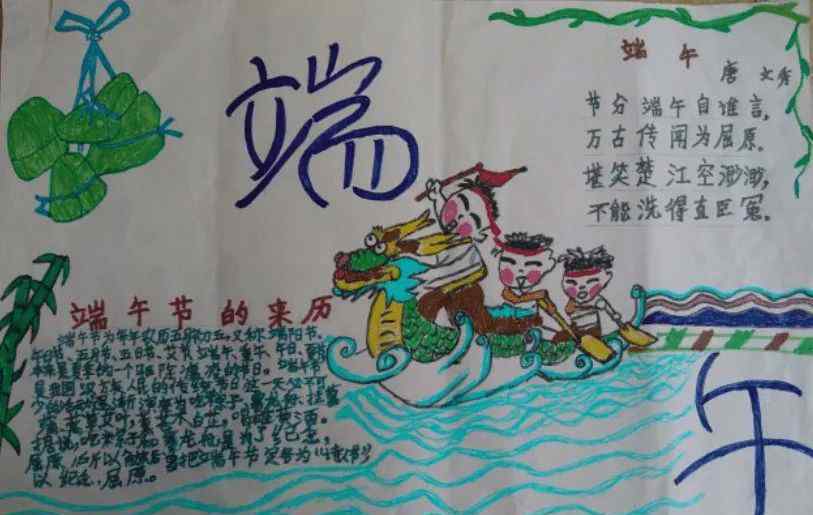 端
端 午
唐 文秀
节分端午自谁言,
万古传闻为屈原。
堪笑楚江空渺渺,
不能洗得直臣冤。
端午节的来历
端午节为每年农历五月初五,又称端阳节、
午日节、五月节、五日节、艾节、端午、重午、午日、夏节
本来是夏季的一个驱除瘟疫的节日。端午节
是我国汉族人民的传统节日这一天必不可
少的活动逐渐演变为吃粽子,赛龙舟,挂菖
蒲、艾叶,薰苍术、白芷,喝雄黄酒。
据说,吃粽子和赛龙舟,是为了纪念
屈原,所以后把端午节定名为"诗人节"
以纪念屈原。
午